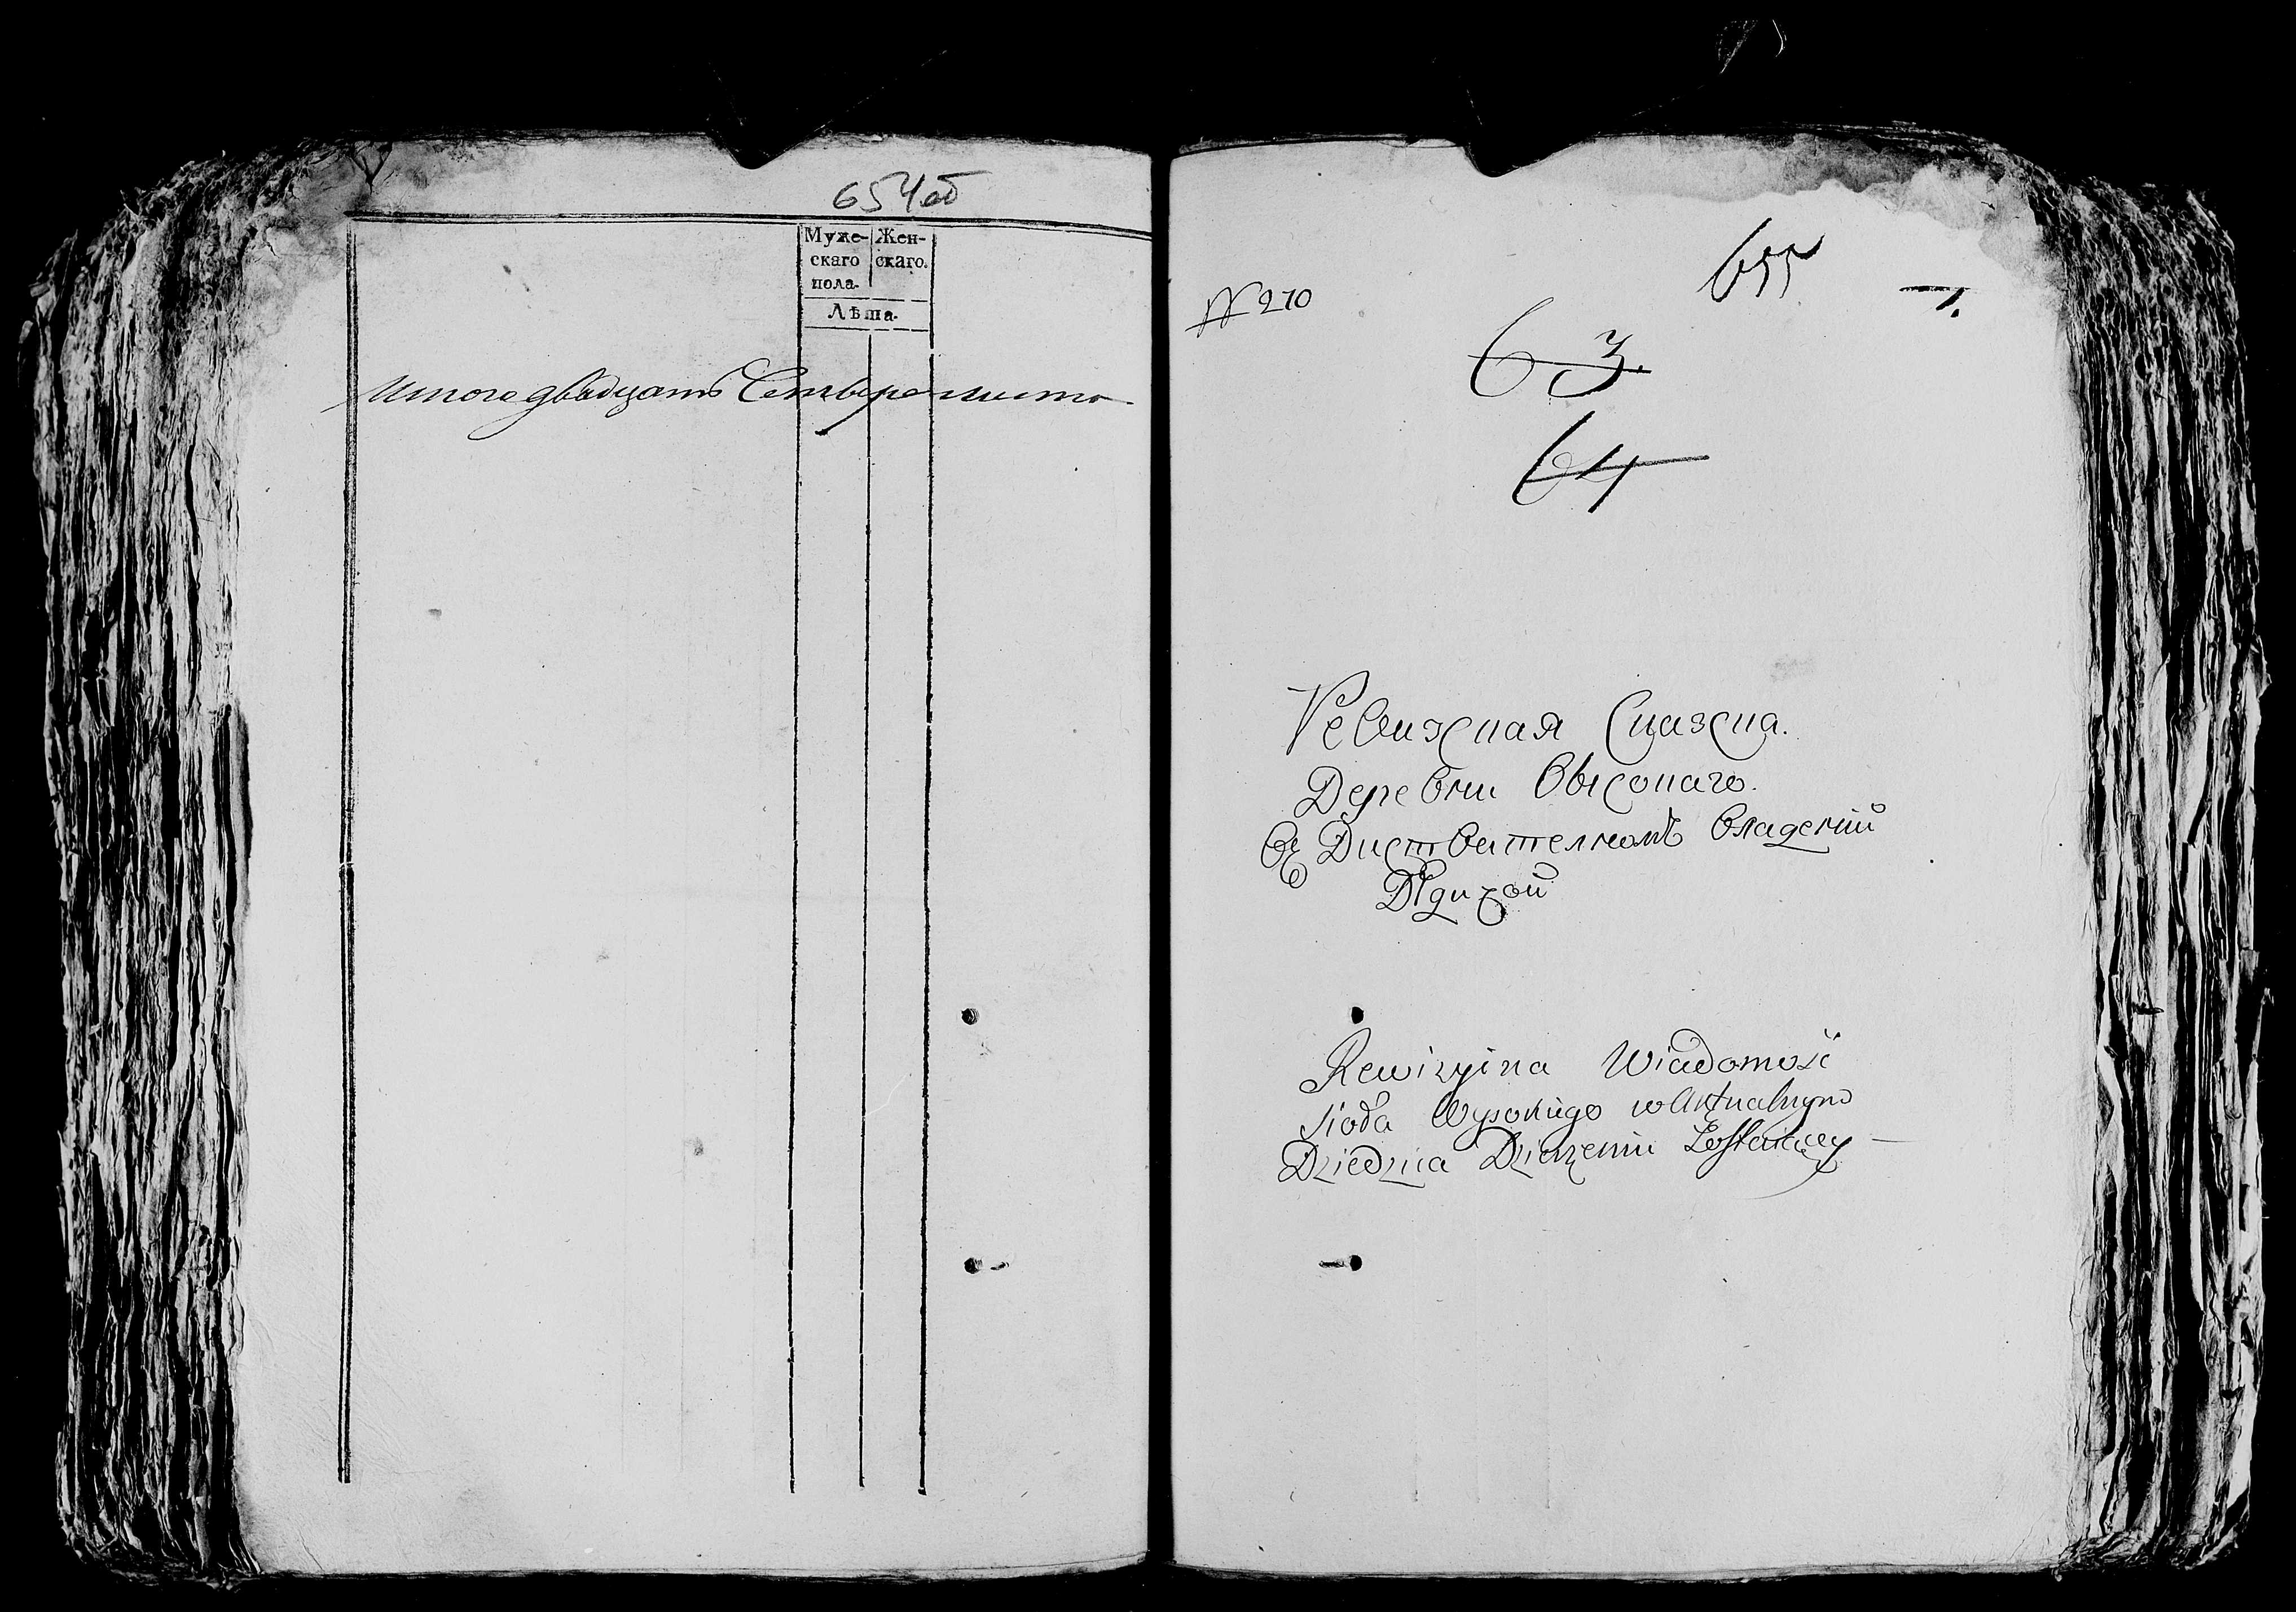 654об
Муже- Жен-
скаго скаго.
пола.
Лѣта.
Итого двадцать Четыре листа
№ 210
655
63.
64
Ревизская Сказка.
Деревни Высокаго.
въ Диствителномъ владении
Rewizyina Wiadomość
sioła Wysokiego w Aktualnym
Dziedzica Dzierzeniu Zostaiącey